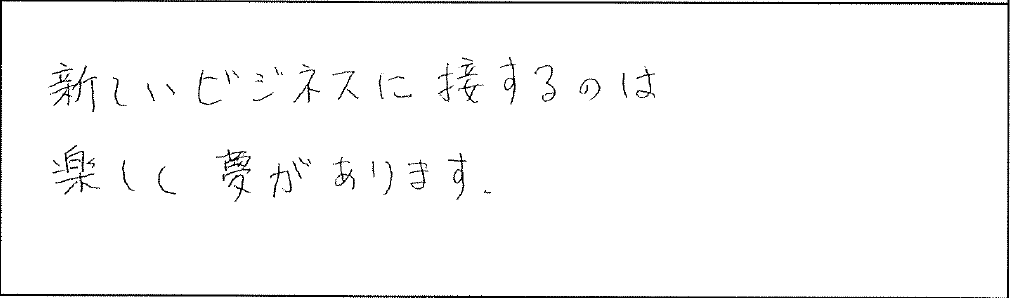 新しいビジネスに接するのは
楽しく夢があります.